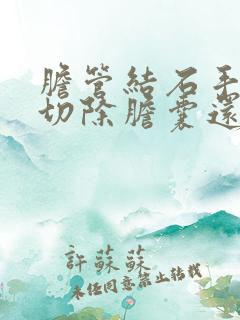 膽管結石手
切除膽囊還
許蘇蘇
未經同意禁止轉載